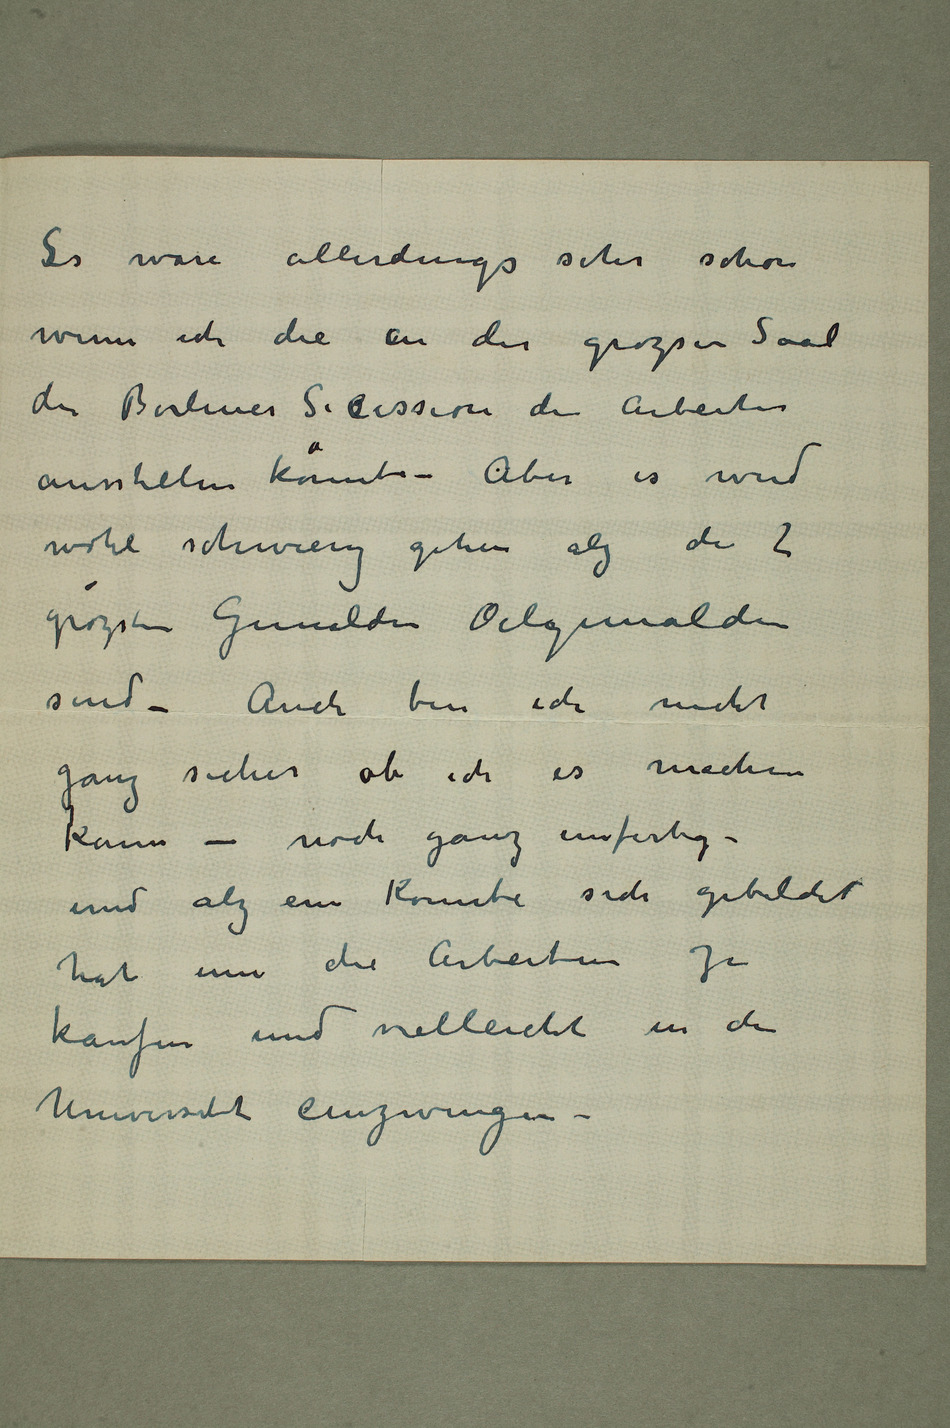 Es wäre allerdings sehr schön
wenn ich die in der grozsen Saal
der Berliner Secession die Arbeiten
ausstellen könnte – Aber es wird
wohl schwierig gehen alz die 2
grözsten Gemälden Oelgemälden
sind – Auch bin ich nicht
ganz sicher ob ich es machen
kann – noch ganz unfertig –
und alz ein Komite sich gebildet
hat um die Arbeiten zu
kaufen und vielleicht in die
Universitet einzwingen –